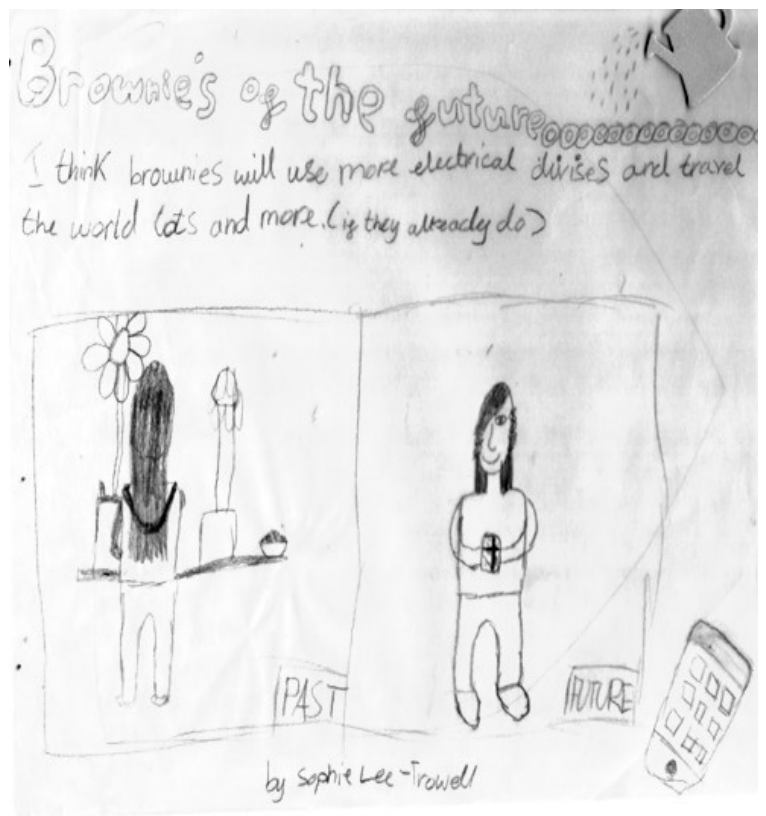 Brownie's of the future
I think brownies will use more electrical divises and travel
the world lots and more. (if they allready do)
PAST
FUTURE
by Sophie Lee-Trowell